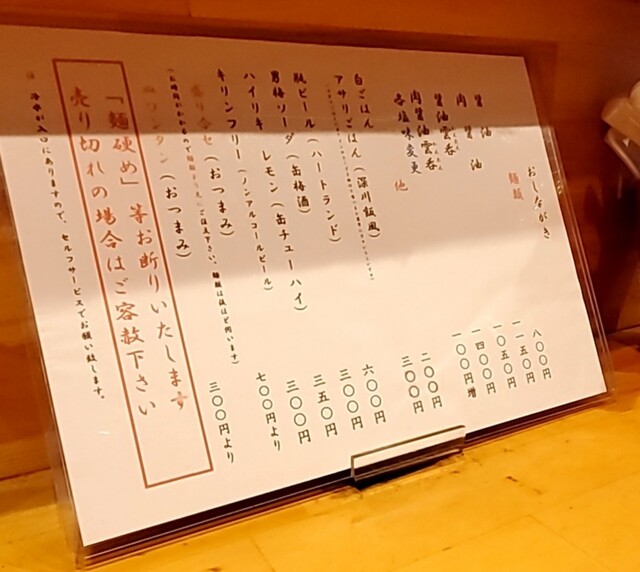 おしながき
麺類
醤油 八〇〇円
肉醤油 一一五〇円
醤油雲呑 一〇五〇円
肉醤油雲呑 一四〇〇円
各塩味変更 一〇〇円増
他
白ごはん 二〇〇円
アサリごはん(深川飯風) 三〇〇円
瓶ビール(ハートランド) 六〇〇円
男梅ソーダ(缶梅酒) 三〇〇円
ハイリキ レモン(缶チューハイ) 三五〇円
キリンフリー(ノンアルコールビール) 三〇〇円
盛り合せ(おつまみ) 七〇〇円より
(お時間かかるので麺類より先にご注文下さい。麺類は後ほど伺います)
皿ワンタン(おつまみ) 三〇〇円より
「麺硬め」等お断りいたします
売り切れの場合はご容赦下さい
冷水が入口にありますので、セルフサービスでお願い致します。